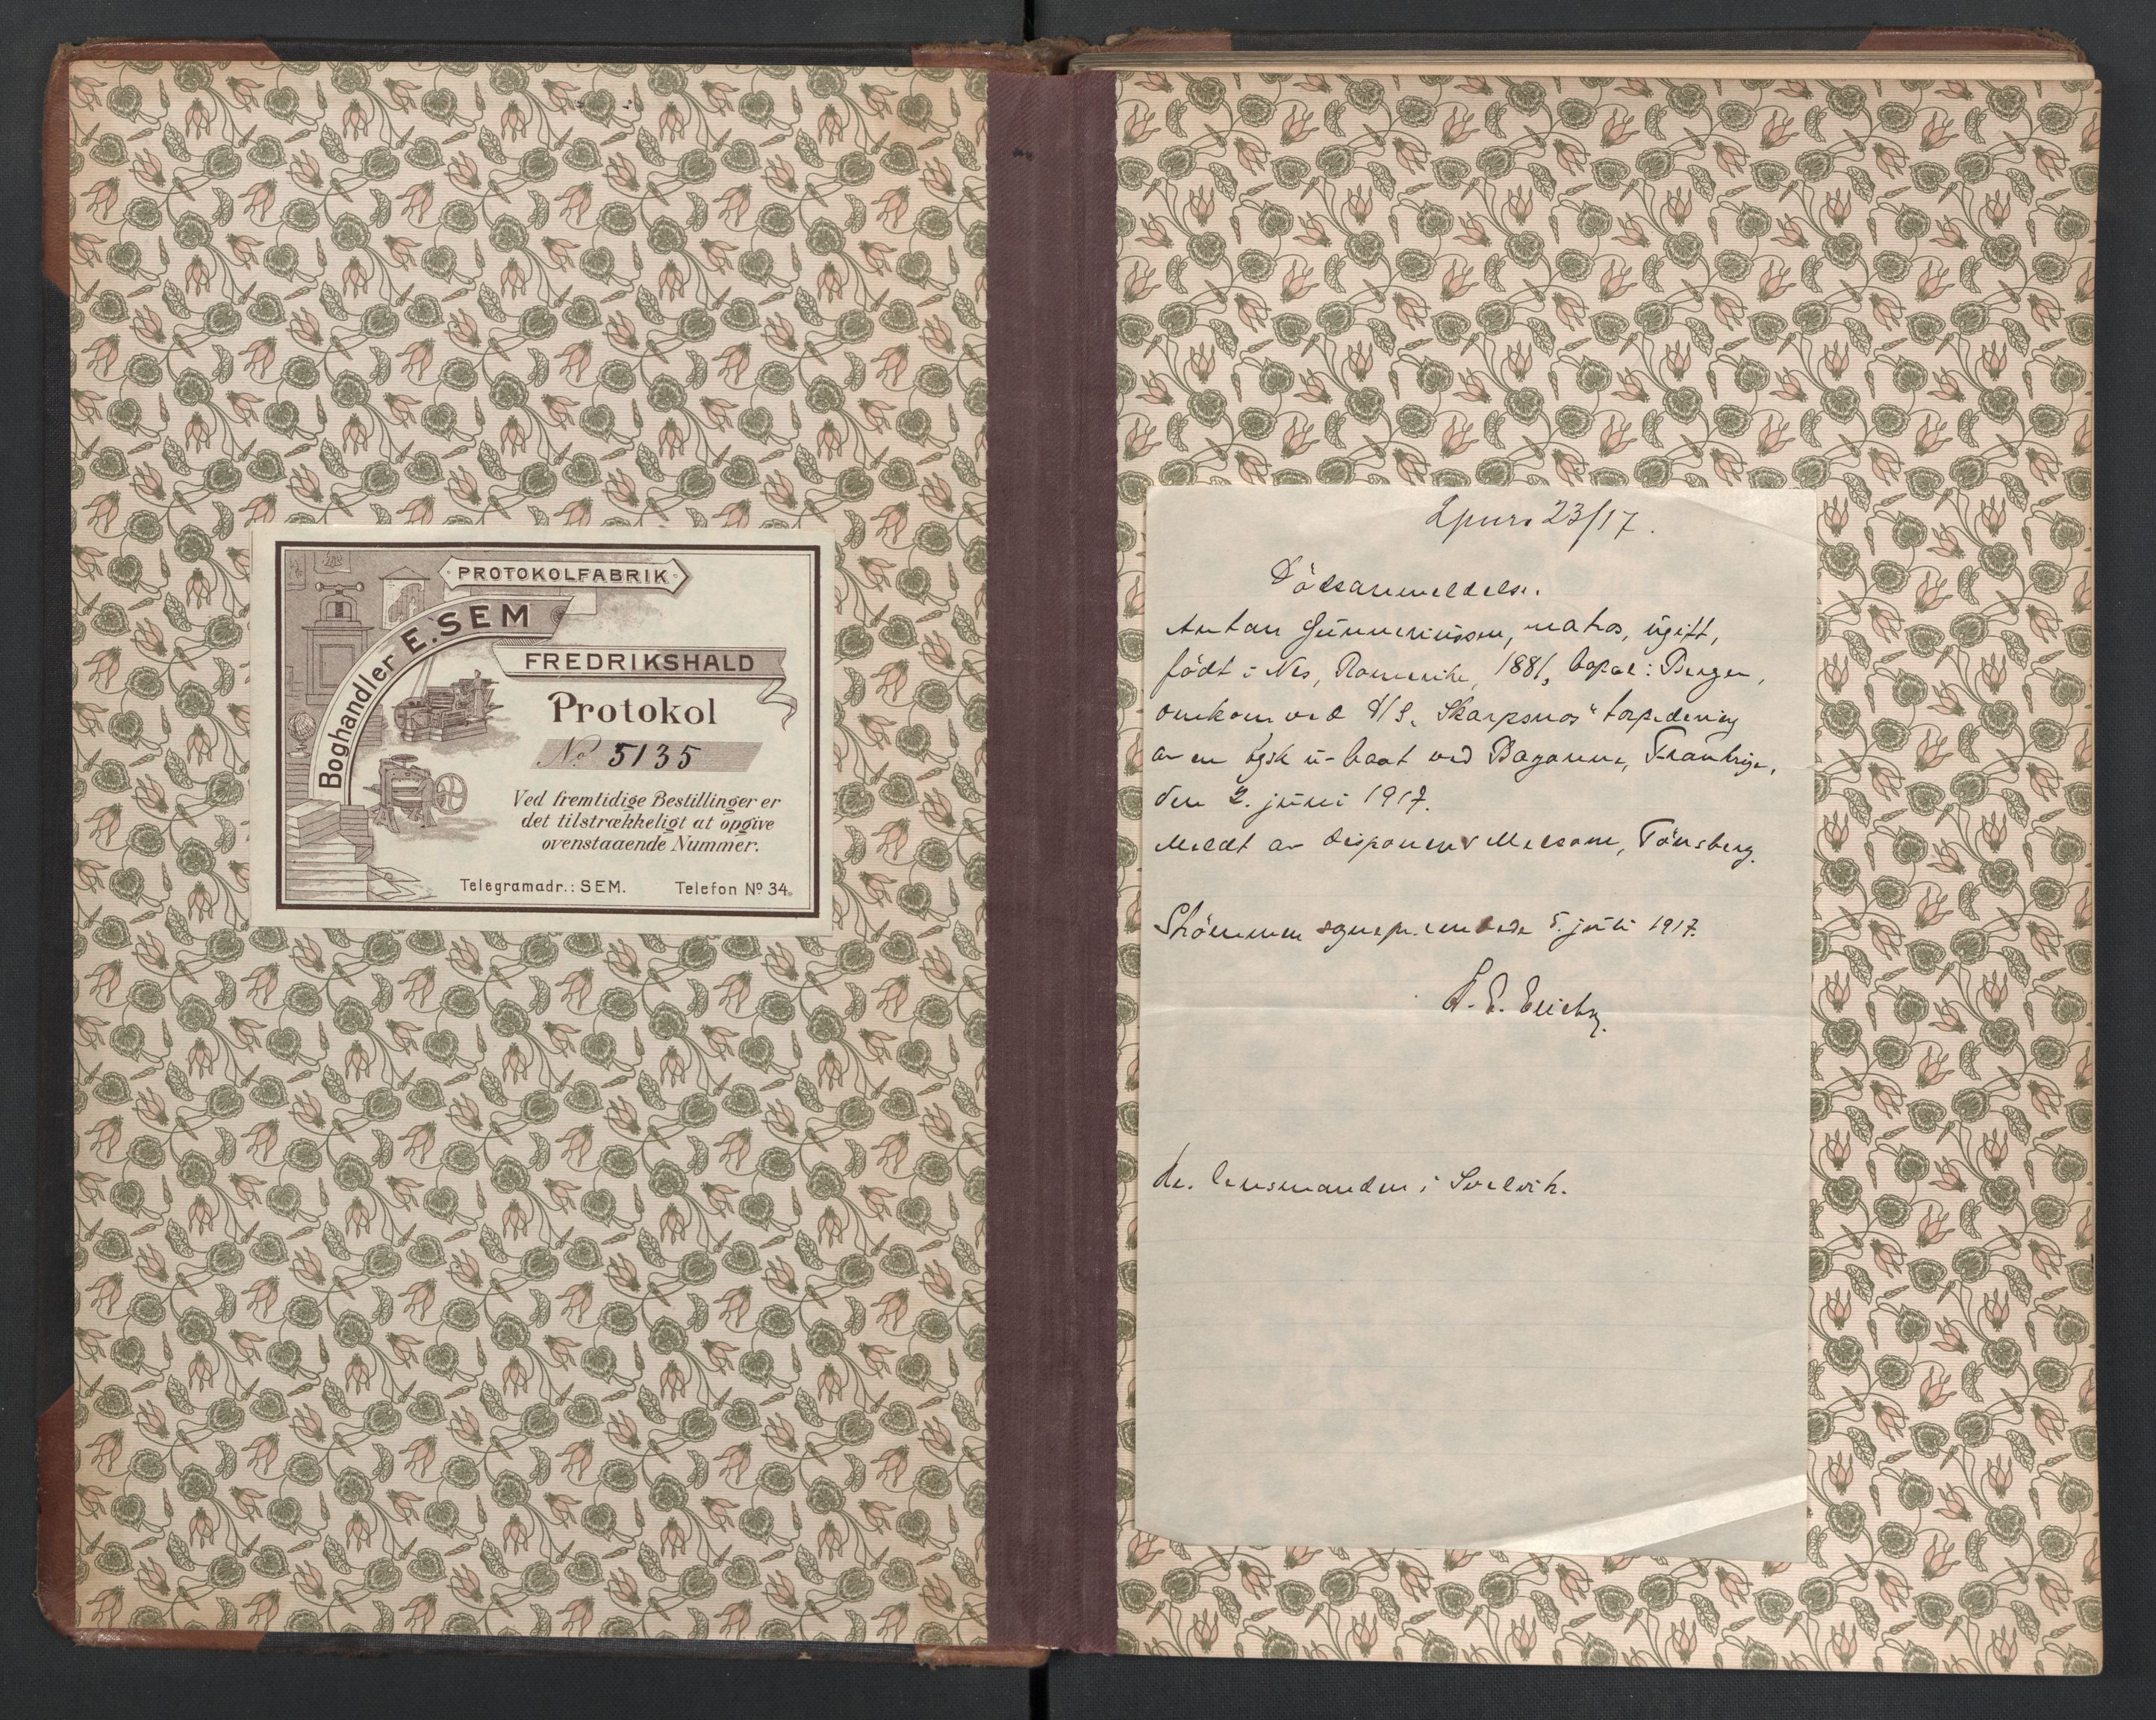 PROTOKOLFABRIK
Boghandler E. SEM
FREDRIKSHALD
Protokol
No 5135
Ved fremtidige Bestillinger er
det tilstrækkeligt at opgive
ovenstaaende Nummer.
Telegramadr.: SEM. Telefon No 34.
23/17.
Dödsanmeldelse.
Anton Gunneriussen, matros, ugift,
födt i Nes, Romerike, 1881, bopæl: Bergen,
omkom ved D/S. Skarpsnos" torpedering
av en tysk u-baat ved Bayonne, Frankrige,
den 2. juni 1917.
Meldt av disponent Melsom, Tönsberg.
Strömmen sognepr.embede 5. juli 1917.
lensmanden i Svelvik.